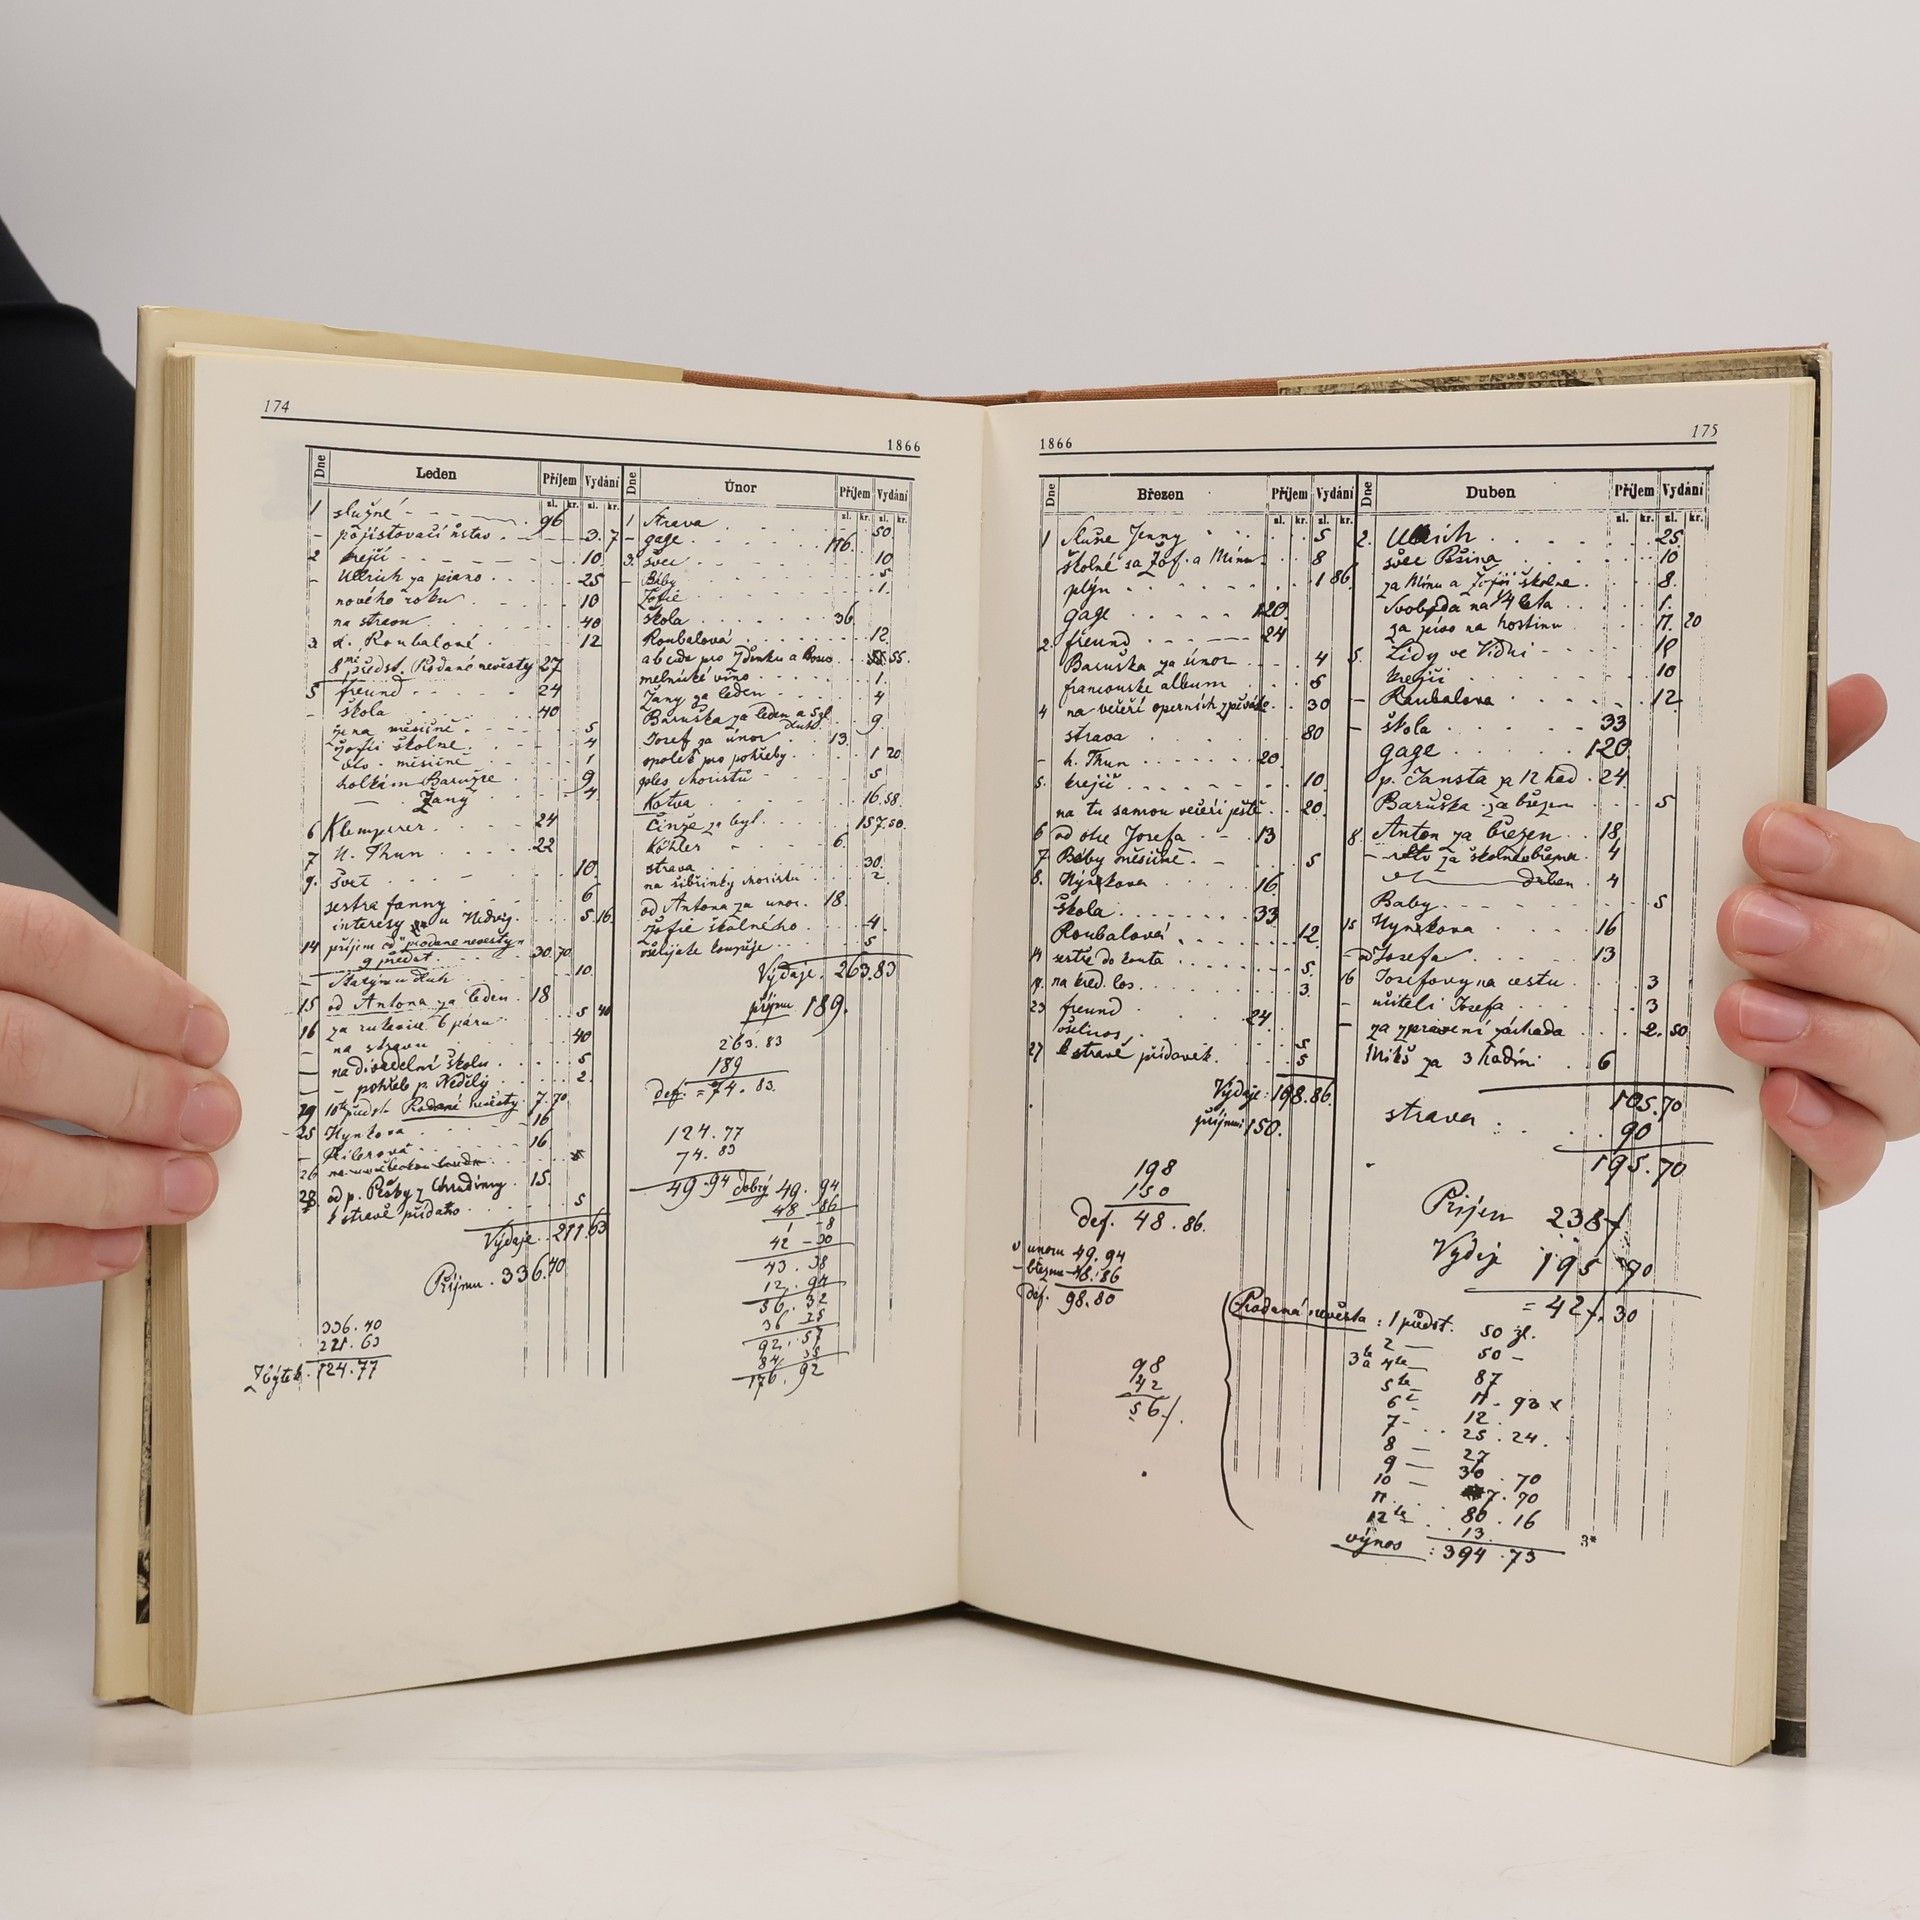 174
1866
Dne Leden Příjem Vydání
zl. kr. zl. kr.
1 služné 96
- pojišťovací ústav 3. 7
2 krejčí 10
- Ullrich za piano 25
nového roku 10
na stravu 40
3 Roubalové 12
8mé předst. Prodané nevěsty 27
5 freund 24
- škola 40
žena měsíčně 5
Žofii školné 4
měsíčně 1
holkám Barušce 9
— Žany 4
6 Klemperer 24
7 H. Thun 22
9. švec 10
sestra fanny 6
interesy u Nedvěj. 5 16
14 příjem co prodané nevěsty
9 předst. 30.70
10
15 od Antona za leden 18
za rukavice 6 páru 5 40
16 na stravu 40
— na divadelní školu 5
— pohřeb p. Neděly 2
29 10té předst. Prodané nevěsty 7.70
25 Hynkova 16
16
26
28 od p. Pešky z Chrudimy 15.
k stravě přídato 5
Výdaje 211.63
Příjmu. 336.40
336.40
211.63
Zbytek 124.77
Dne Únor Příjem Vydání
zl. kr. zl. kr.
1 Strava 50
- gage 116.
3. švec 10
- Báby 5
Žofie 1.
škola 36
Roubalová 12
abceda pro Zdenku a Boženu 55
mělnické víno 1.
Žany za leden 4
Baruška za leden a 9.
Josef za únor 13.
spolek pro pohřeby 1 20
ples choristů 5
Kotva 16.58.
Činže za byt 157.50.
Köhler 6.
strava 30.
na šibřinky choristu 2
od Antona za unor. 18.
Žofie školného 4
všelijaké koupěje 5
Výdaje. 263.83
příjmu 189.
263.83
189
def. = 74.83.
124.77
74.83
49.94 dobrý 49.94
48.86
1 - 8
42 - 30
43.38
12.94
56.32
36 25
92.57
84 35
176.92
1866
175
Dne Březen Příjem Vydání
zl. kr. zl. kr.
1 Jenny 5
školné za Žof. a Minu 8
plýn 1 86
gage 120
2. freund 24
Baruška za únor 4
francouské album 5
4 na večeři operních zpěváků 30
strava 80
- h. Thun 20.
5. krejčí 10
na tu samou večeři ještě 20.
6 od otce Josefa 13
7 Báby měsíčně 5
8. Hynkova 16
škola 33
Roubalová 12
14 sestře do konta 5.
na kred. los 3.
23 freund 24
všelicos 5
27 k stravě přídavek 5
Výdaje: 198.86.
příjmu: 150.
198
150
def. 48.86.
v únoru 49.94
- březnu 48.86
def. 98.80
98
42
56/.
Dne Duben Příjem Vydání
zl. kr. zl. kr.
2. Ullrich 25
švec Pšina 10
za Minu a Žofii školné 8.
Svoboda na 1/4 leta 1.
za pivo na hostinu 11. 20
5. Lidy ve Vídni 18
krejčí 10
- Roubalova 12
- škola 33
gage 120
p. Jansta za 12 hod. 24
Baruška za březen 5
8. Anton za březen 18
- za školné březen 4
— duben 4
Baby 5
15 Hynkova 16
- od Josefa 13
16 Josefovy na cestu 3
- učiteli Josefa 3
- za zpravení záchoda 2.50
Mikš za 3 hodiny 6
105.70
strava 90
195.70
Příjem 238/
Vydej 195 70
= 42/.30
Prodaná nevěsta: 1 předst. 50 zl.
2 — 50 -
3 a 4 87
5 11. 93 x
6 - 12
7 - 25.24.
8 — 27
9 — 30.70
10 — 7.70
11. 80.16
12 13
výnos : 394.73
3*